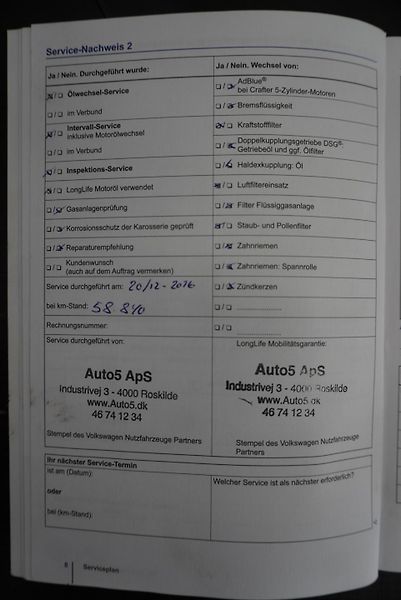 Service-Nachweis 2
Ja / Nein. Durchgeführt wurde:
Ja / Nein. Wechsel von:
Ölwechsel-Service
AdBlue®
bei Crafter 5-Zylinder-Motoren
im Verbund
Bremsflüssigkeit
Intervall-Service
inklusive Motorölwechsel
Kraftstofffilter
im Verbund
Doppelkupplungsgetriebe DSG®:
Getriebeöl und ggf. Ölfilter
Inspektions-Service
Haldexkupplung: Öl
LongLife Motoröl verwendet
Luftfiltereinsatz
Gasanlagenprüfung
Filter Flüssiggasanlage
Korrosionsschutz der Karosserie geprüft
Staub- und Pollenfilter
Reparaturempfehlung
Zahnriemen
Kundenwunsch
(auch auf dem Auftrag vermerken)
Zahnriemen: Spannrolle
Service durchgeführt am: 20/12-2016
Zündkerzen
bei km-Stand: 58 840
Rechnungsnummer:
Service durchgeführt von:
LongLife Mobilitätsgarantie:
Auto5 ApS
Industrivej 3 - 4000 Roskilde
www.Auto5.dk
46 74 12 34
Auto5 ApS
Industrivej 3 - 4000 Roskilde
www.Auto5.dk
46 74 12 34
Stempel des Volkswagen Nutzfahrzeuge
Partners
Stempel des Volkswagen Nutzfahrzeuge
Partners
Ihr nächster Service-Termin
ist am (Datum):
Welcher Service ist als nächster erforderlich?
oder
bei (km-Stand):
8
Serviceplan